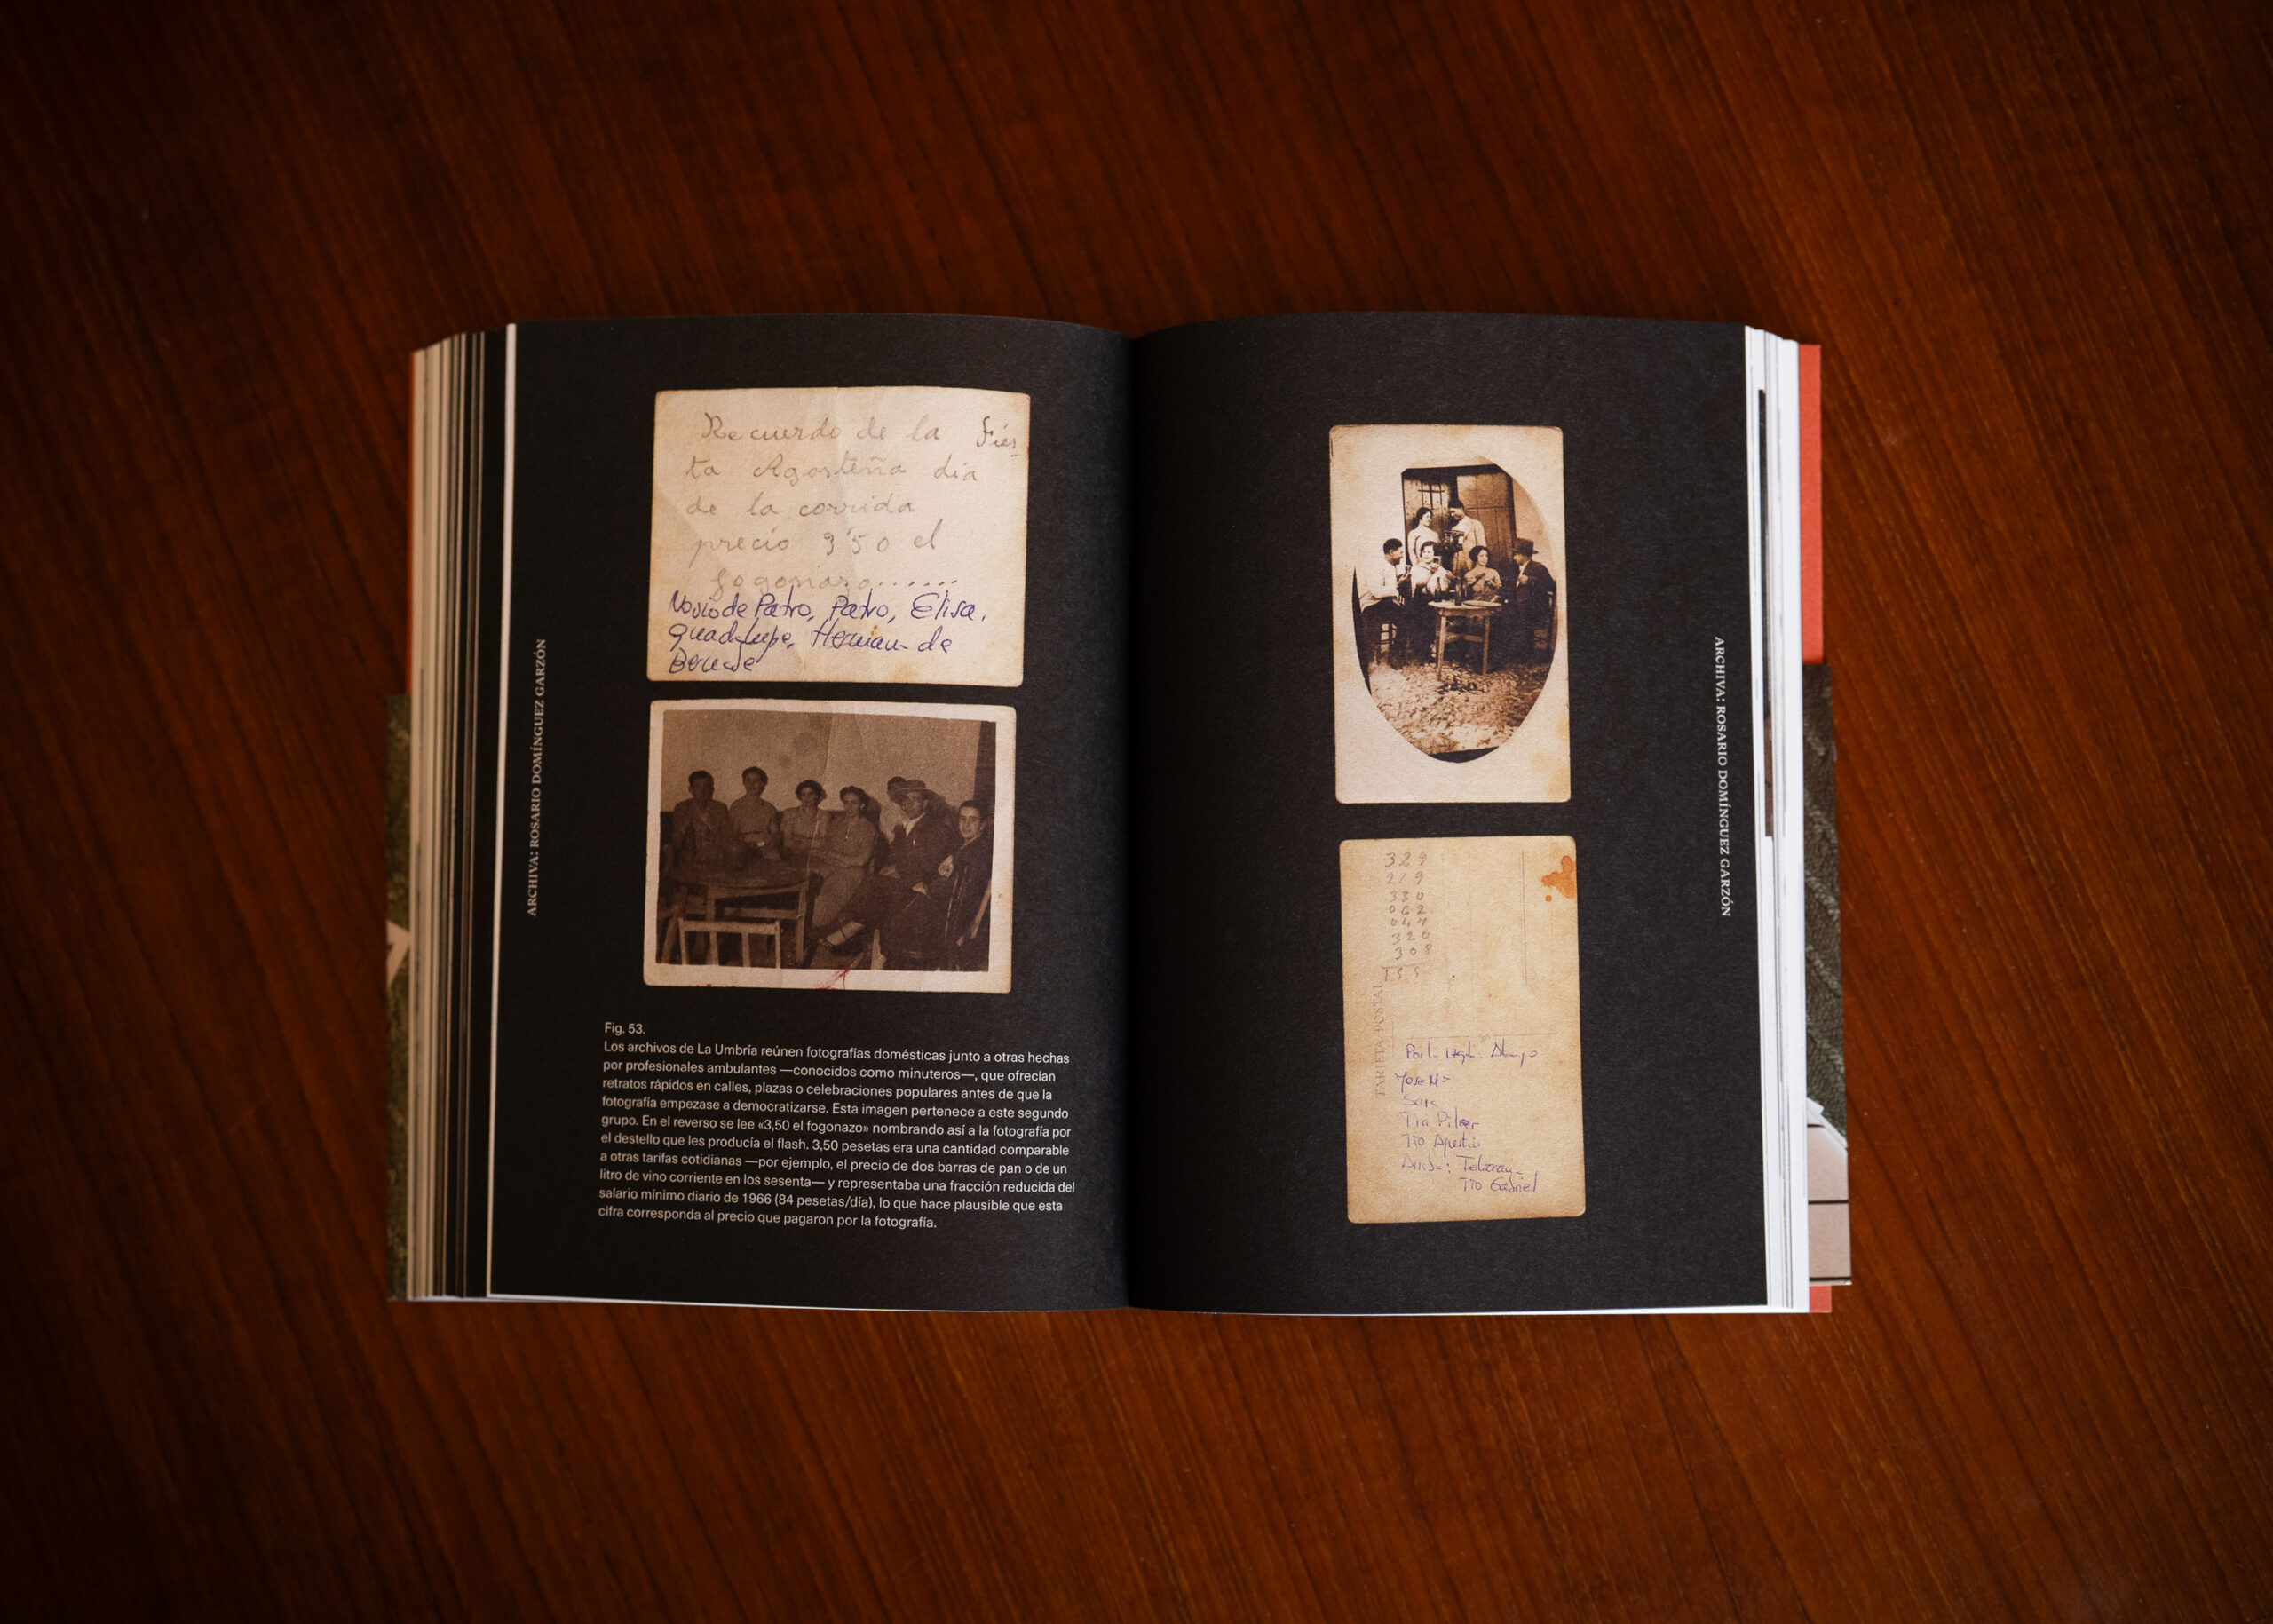 ARCHIVA: ROSARIO DOMÍNGUEZ GARZÓN
Recuerdo de la Fies
ta Agosteña dia
de la corrida
precio 3'50 el
fogonazo.......
Novio de Patro, Patro, Elisa,
Guadalupe, Herman- de
Fig. 53.
Los archivos de La Umbría reúnen fotografías domésticas junto a otras hechas
por profesionales ambulantes —conocidos como minuteros—, que ofrecían
retratos rápidos en calles, plazas o celebraciones populares antes de que la
fotografía empezase a democratizarse. Esta imagen pertenece a este segundo
grupo. En el reverso se lee «3,50 el fogonazo» nombrando así a la fotografía por
el destello que les producía el flash. 3,50 pesetas era una cantidad comparable
a otras tarifas cotidianas —por ejemplo, el precio de dos barras de pan o de un
litro de vino corriente en los sesenta— y representaba una fracción reducida del
salario mínimo diario de 1966 (84 pesetas/día), lo que hace plausible que esta
cifra corresponda al precio que pagaron por la fotografía.
329
219
330
062
047
320
308
155
TARJETA POSTAL
Jose Mª
Sara
Tia Pilar
Tio Agustin
Tio Gabriel
ARCHIVA: ROSARIO DOMÍNGUEZ GARZÓN